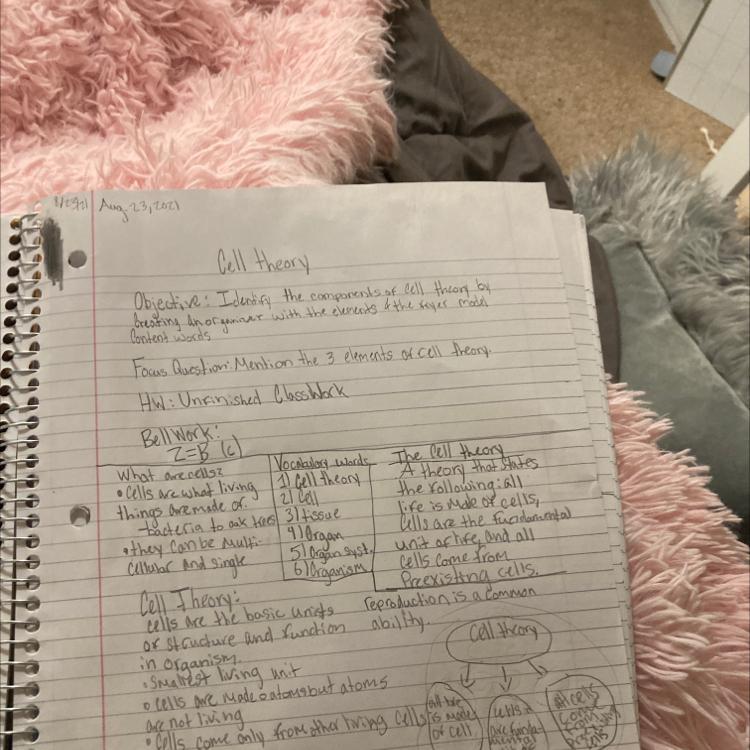 8/23/21 Aug. 23, 2021
Cell theory
Objective: Identify the components of cell theory by
creating an organizer with the elements & the Frayer model
content words
Focus Question: Mention the 3 elements of cell theory.
HW: Unfinished ClassWork
BellWork:
Z=B (C)
What are cells?
• Cells are what living
things are made of.
- bacteria to oak trees
• they can be multi-
cellular and single
Vocabulary words
1) Cell theory
2) Cell
3) tissue
4) Organ
5) Organ syst.
6) Organism
The Cell theory
A theory that states
the following: all
life is made of cells,
Cells are the fundamental
unit of life, and all
cells come from
Preexisting cells.
Cell Theory:
cells are the basic units
of structure and function
in organism.
• Smallest living unit
• Cells are made of atoms but atoms
are not living
• Cells come only from other living cells
reproduction is a common
ability.
Cell theory
all life
is made
of cell
cells
are funda-
mental
all cells
come
from